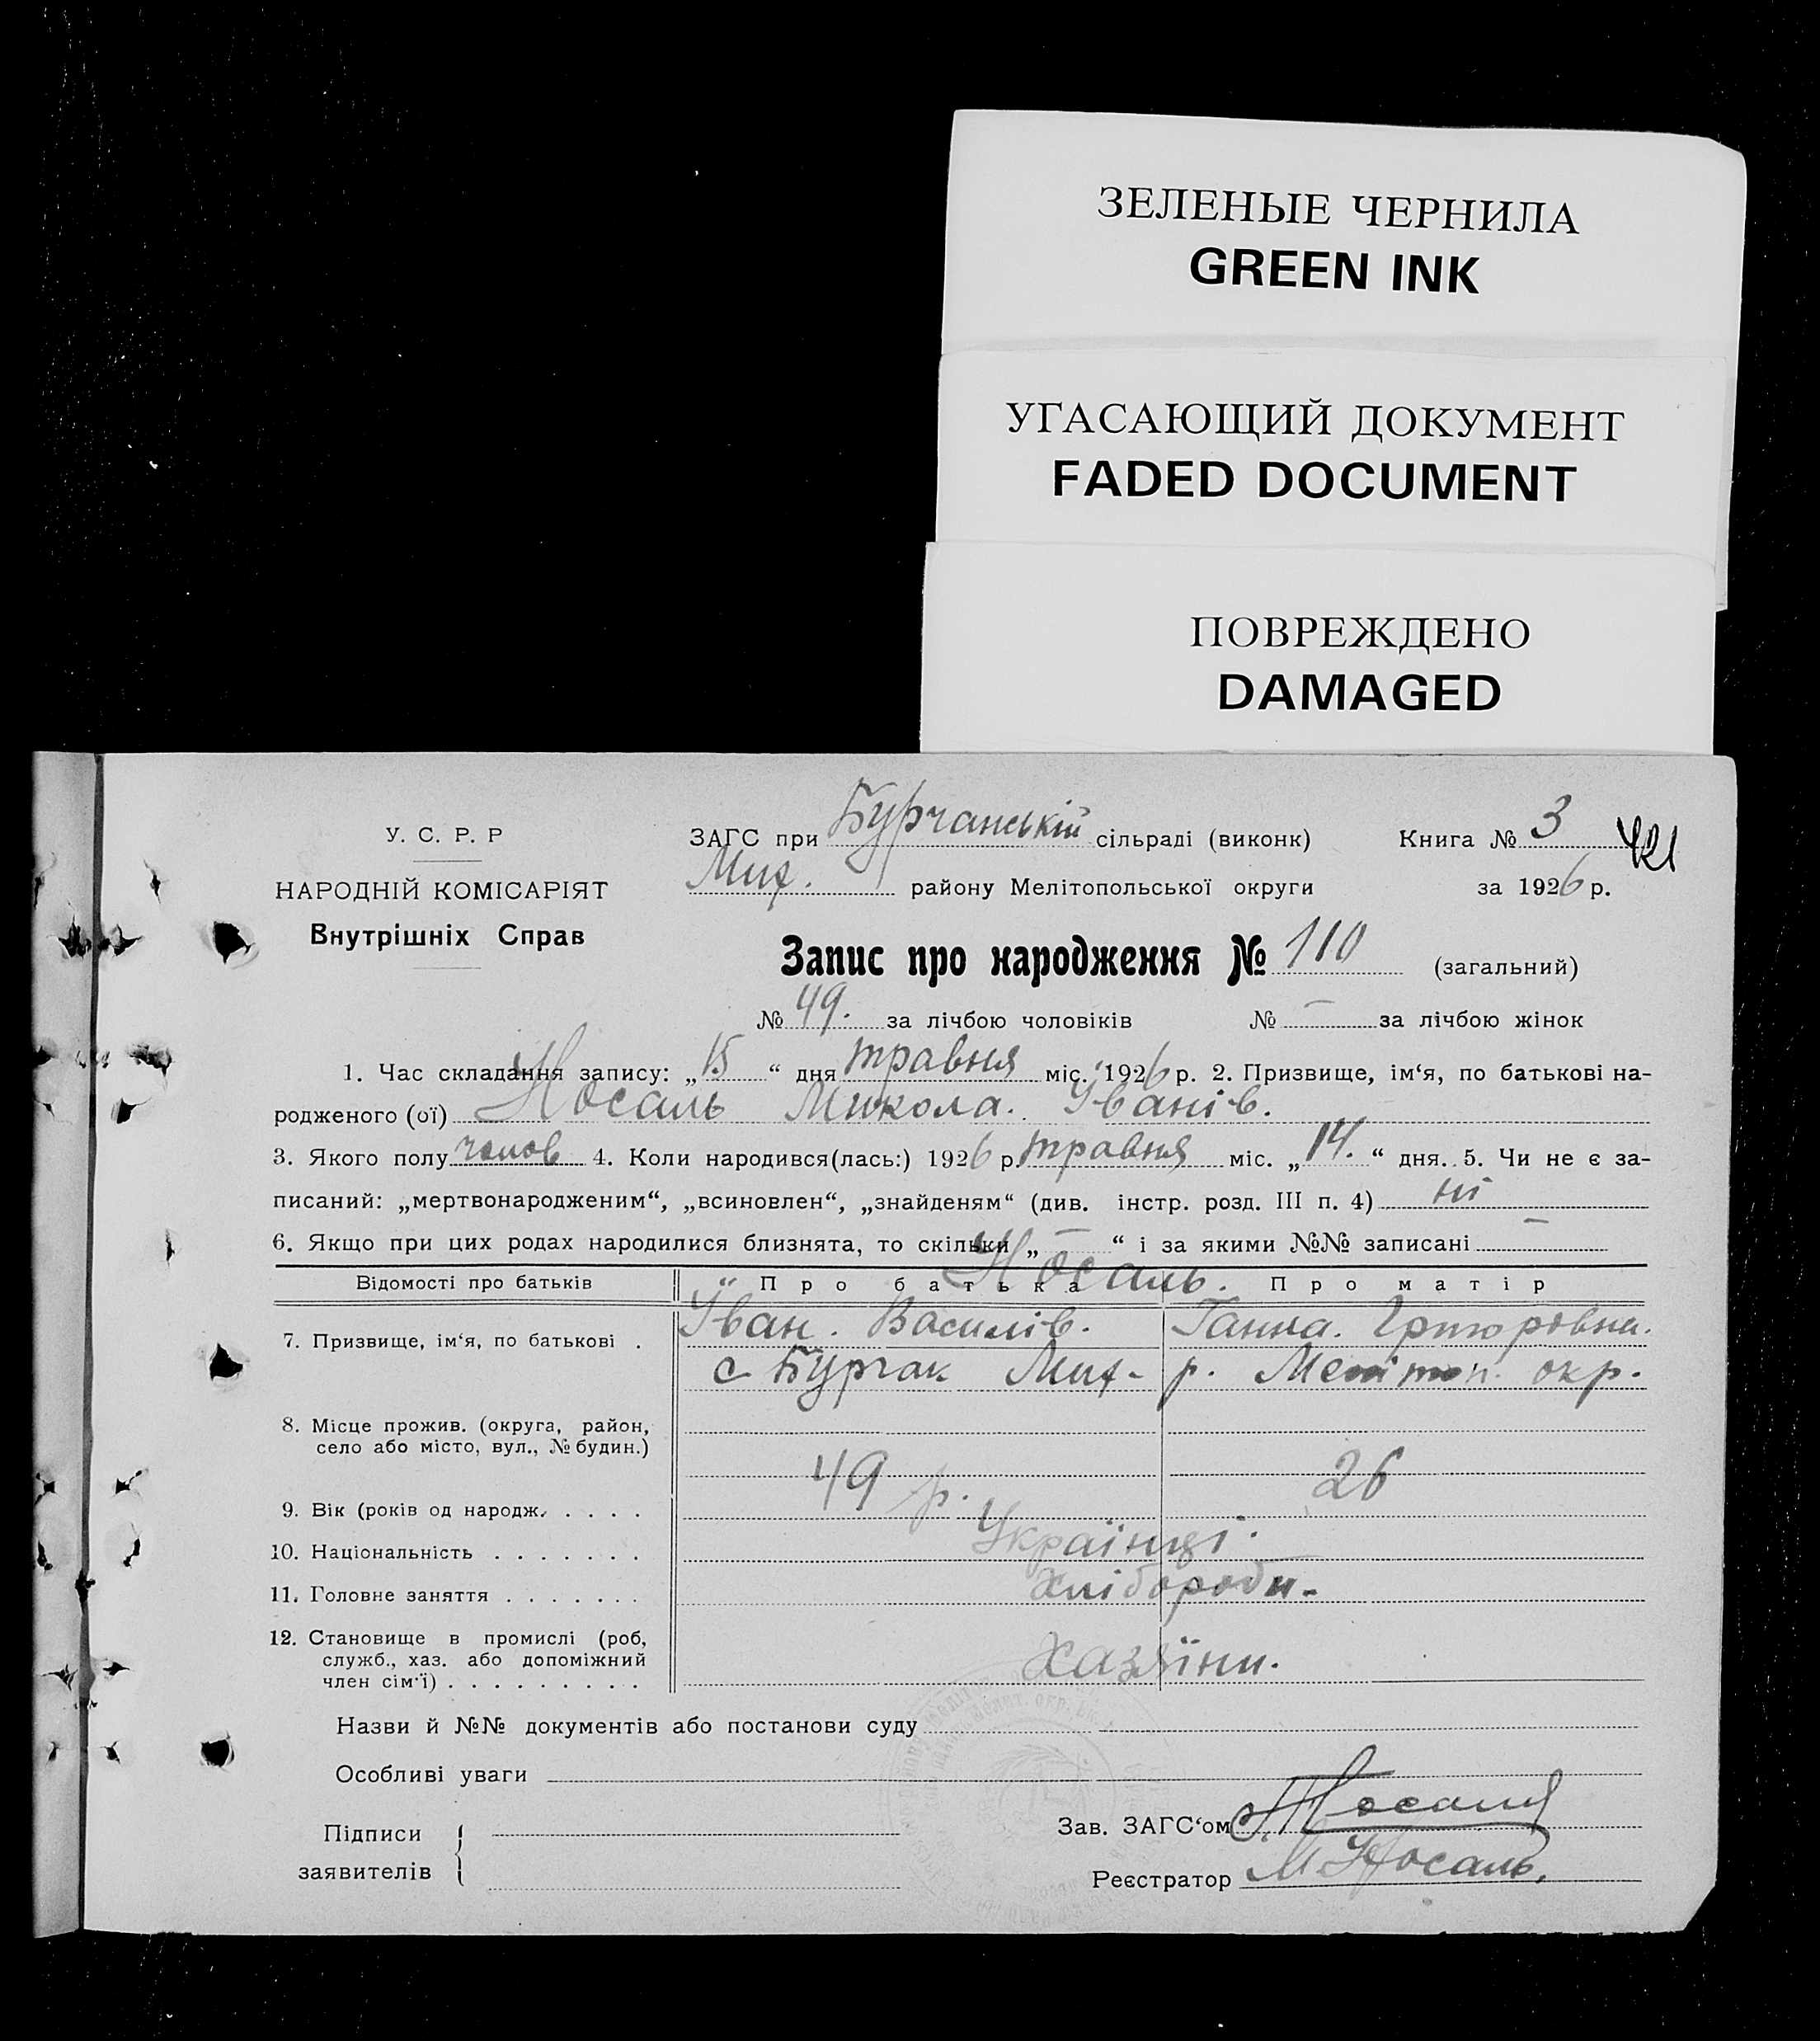 ЗЕЛЕНЫЕ ЧЕРНИЛА
GREEN INK
УГАСАЮЩИЙ ДОКУМЕНТ
FADED DOCUMENT
ПОВРЕЖДЕНО
DAMAGED
У. С. Р. Р
НАРОДНІЙ КОМІСАРІЯТ
Внутрішніх Справ
ЗАГС при Бурчанській сільраді (виконк) Книга № 3 421
Мих. району Мелітопольської округи за 1926 р.
Запис про народження № 110 (загальний)
№ 49. за лічбою чоловіків № — за лічбою жінок
1. Час складання запису: „15“ дня травня міс. 1926 р. 2. Призвище, ім‘я, по батькові на-
родженого (ої) Носаль Микола. Іванів.
3. Якого полу чолов 4. Коли народився(лась:) 1926 р. травня міс. „14.“ дня. 5. Чи не є за-
писаний: „мертвонародженим“, „всиновлен“, „знайденям“ (див. інстр. розд. III п. 4) ні
6. Якщо при цих родах народилися близнята, то скільки „—“ і за якими №№ записані —
Відомості про батьків Про батька Про матір
Носаль.
7. Призвище, ім‘я, по батькові . Іван. Василів. Ганна. Григоровна.
с Бурчак Мих- р. Меліտոп. окр.
8. Місце прожив. (округа, район,
село або місто, вул., № будин.)
9. Вік (років од народж. . . . . 49 р. 26
10. Національність . . . . . . . Українці.
11. Головне заняття . . . . . . . Хлібороби-
12. Становище в промислі (роб,
служб., хаз. або допоміжний
член сім‘ї) . . . . . . . . . Хазяїни.
Назви й №№ документів або постанови суду
Особливі уваги
Підписи
заявителів
Зав. ЗАГС‘ом Носаль
Реєстратор М. Носаль.